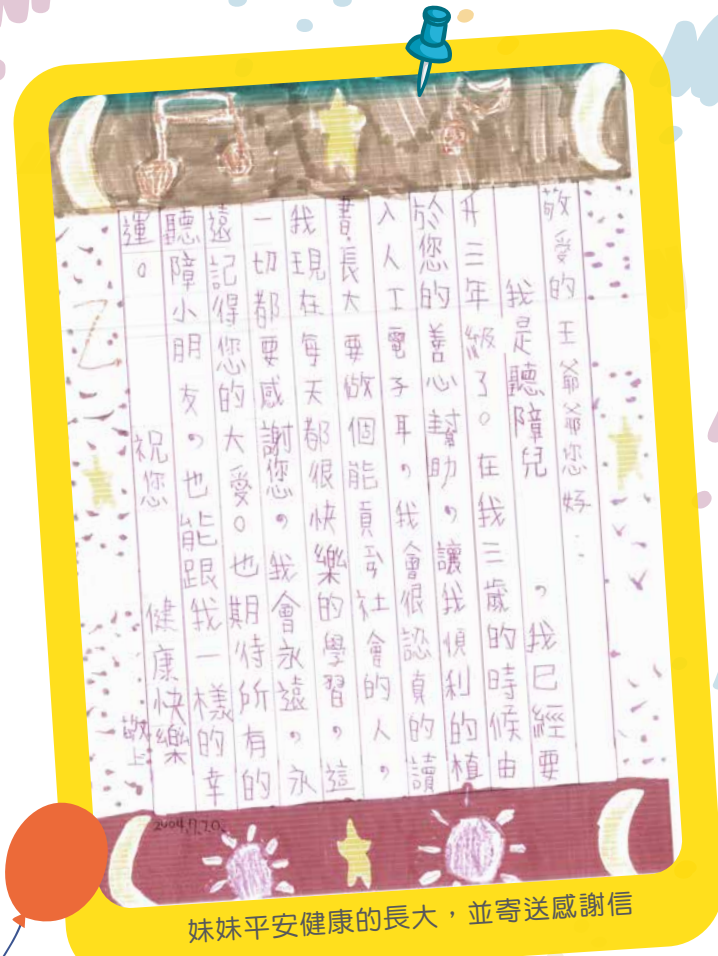 敬愛的王爺爺您好：
我是聽障兒　　，我已經要
升三年級了。在我三歲的時候由
於您的善心幫助，讓我順利的植
入人工電子耳，我會很認真的讀
書，長大要做個能貢社會的人，
我現在每天都很快樂的學習，這
一切都要感謝您，我會永遠，永
遠記得您的大愛。也期待所有的
聽障小朋友，也能跟我一樣的幸
運。
祝您
健康快樂
敬上
2004.7.20.
妹妹平安健康的長大，並寄送感謝信